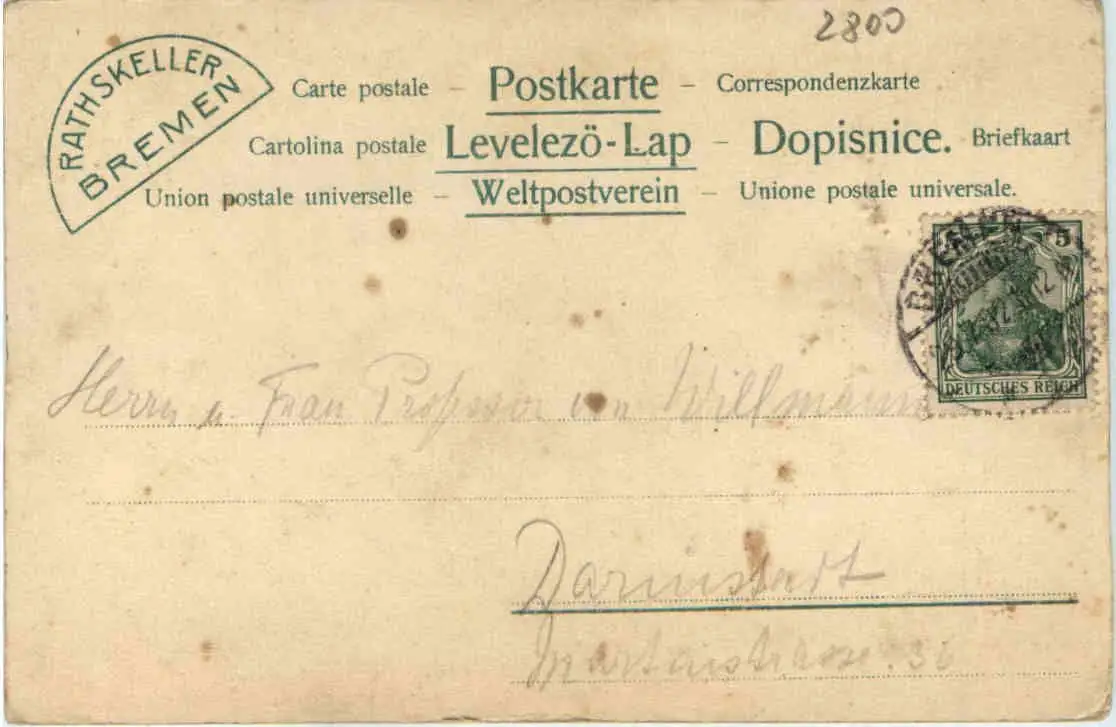 2800
RATHSKELLER
BREMEN
Carte postale – Postkarte – Correspondenzkarte
Cartolina postale Levelezö-Lap – Dopisnice. Briefkaart
Union postale universelle – Weltpostverein – Unione postale universale.
BREMEN
5
DEUTSCHES REICH
Herrn u. Frau Professor von Willmann
Darmstadt
36